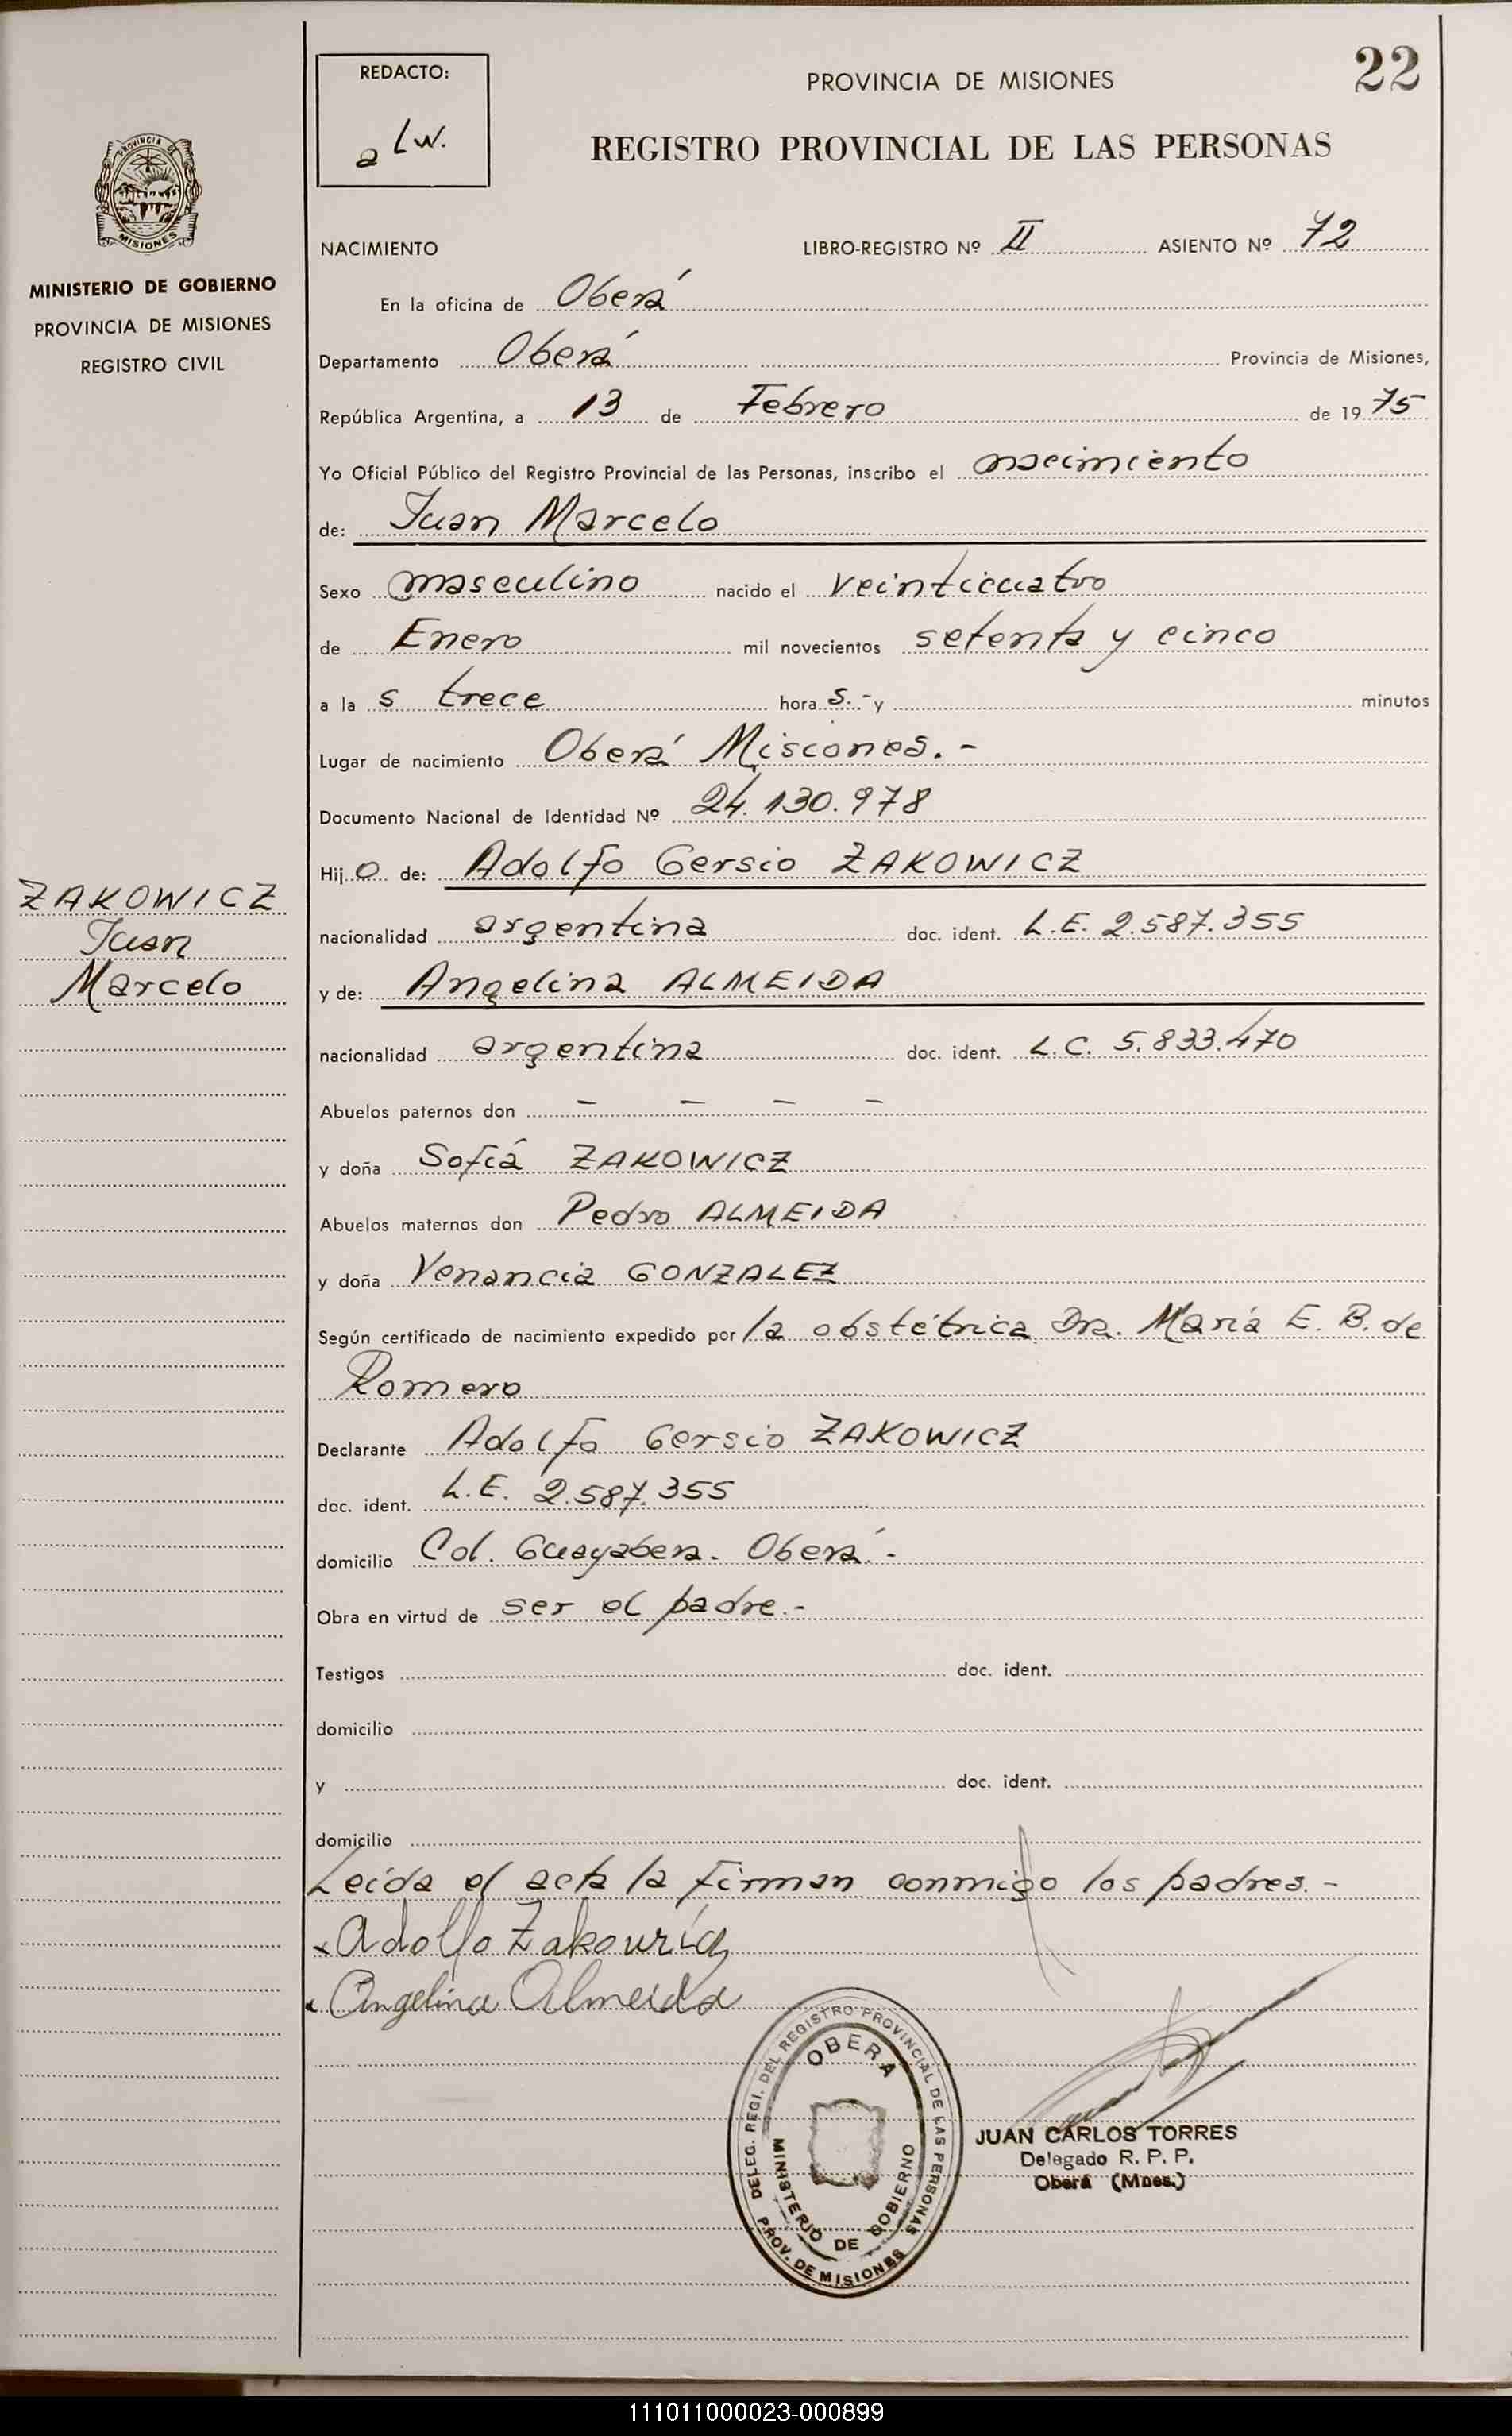 22
REDACTO:
a Lw.
PROVINCIA DE MISIONES
REGISTRO PROVINCIAL DE LAS PERSONAS
PROVINCIA DE
MISIONES
MINISTERIO DE GOBIERNO
PROVINCIA DE MISIONES
REGISTRO CIVIL
NACIMIENTO LIBRO-REGISTRO Nº II ASIENTO Nº 72
En la oficina de Oberá
Departamento Oberá Provincia de Misiones,
República Argentina, a 13 de Febrero de 1975
Yo Oficial Público del Registro Provincial de las Personas, inscribo el nacimiento
de: Juan Marcelo
Sexo masculino nacido el veinticuatro
de Enero mil novecientos setenta y cinco
a las trece horas.- y minutos
Lugar de nacimiento Oberá Misiones.-
Documento Nacional de Identidad Nº 24.130.978
Hijo de: Adolfo Gersio ZAKOWICZ
ZAKOWICZ
Juan
Marcelo
nacionalidad argentina doc. ident. L.E. 2.587.355
y de: Angelina ALMEIDA
nacionalidad argentina doc. ident. L.C. 5.833.470
Abuelos paternos don - - - -
y doña Sofiá ZAKOWICZ
Abuelos maternos don Pedro ALMEIDA
y doña Venancia GONZALEZ
Según certificado de nacimiento expedido por la obstétrica Dra. María E. B. de
Romero
Declarante Adolfo Gersio ZAKOWICZ
doc. ident. L.E. 2.587.355
domicilio Col. Guayabera. Oberá.-
Obra en virtud de ser el padre.-
Testigos doc. ident.
domicilio
y doc. ident.
domicilio
Leída el acta la firman conmigo los padres.-
x Adolfo Zakowicz
x Angelina Almeida
DELEG. REGI. DEL REGISTRO PROVINCIAL DE LAS PERSONAS
OBERA
MINISTERIO DE GOBIERNO
PROV. DE MISIONES
JUAN CARLOS TORRES
Delegado R. P. P.
Oberá (Mnes.)
111011000023-000899